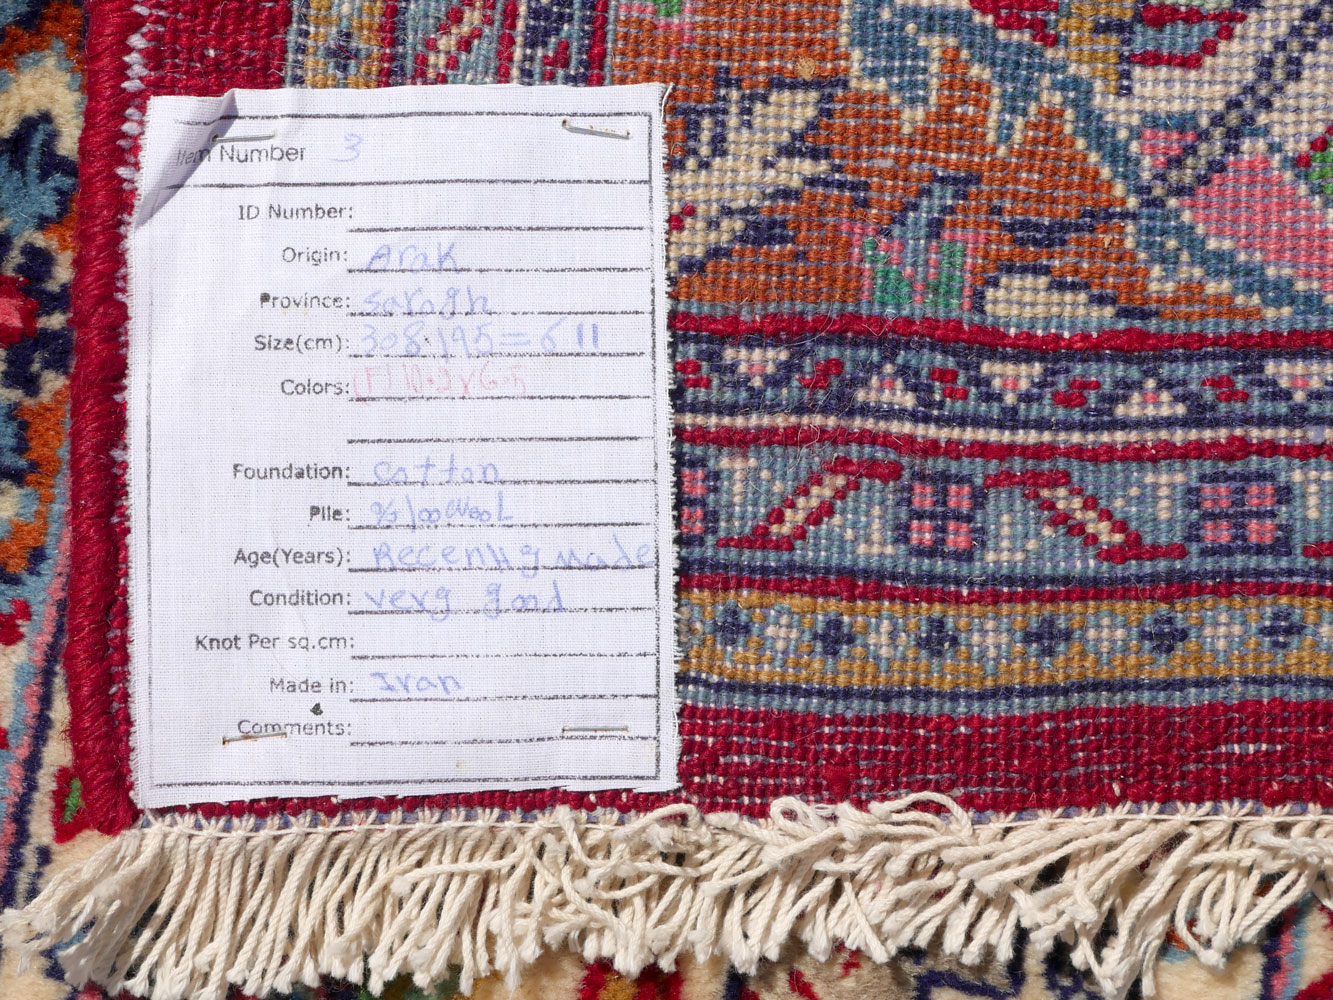 Item Number 3
ID Number:
Origin: Arak
Province: sarogh
Size(cm): 308*195=6 11
Colors: (F) 10.2x6.5
Foundation: cotton
Pile: %100 WooL
Age(Years): Recently made
Condition: very good
Knot Per sq.cm:
Made in: Iran
Comments: